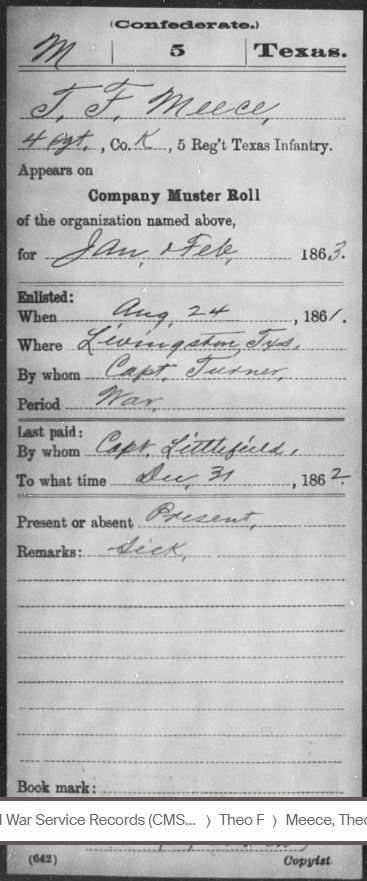 (Confederate.)
M 5 Texas.
T. F. Meece,
4 Sgt., Co. K, 5 Reg't Texas Infantry.
Appears on
Company Muster Roll
of the organization named above,
for Jan, & Feb, 1863.
Enlisted:
When Aug, 24, 1861.
Where Livingston, Txs,
By whom Capt. Turner,
Period War,
Last paid:
By whom Capt. Littlefield,
To what time Dec, 31, 1862.
Present or absent Present,
Remarks: Sick,
Book mark:
l War Service Records (CMS... 〉 Theo F 〉 Meece, Theo
(642) Copyist.